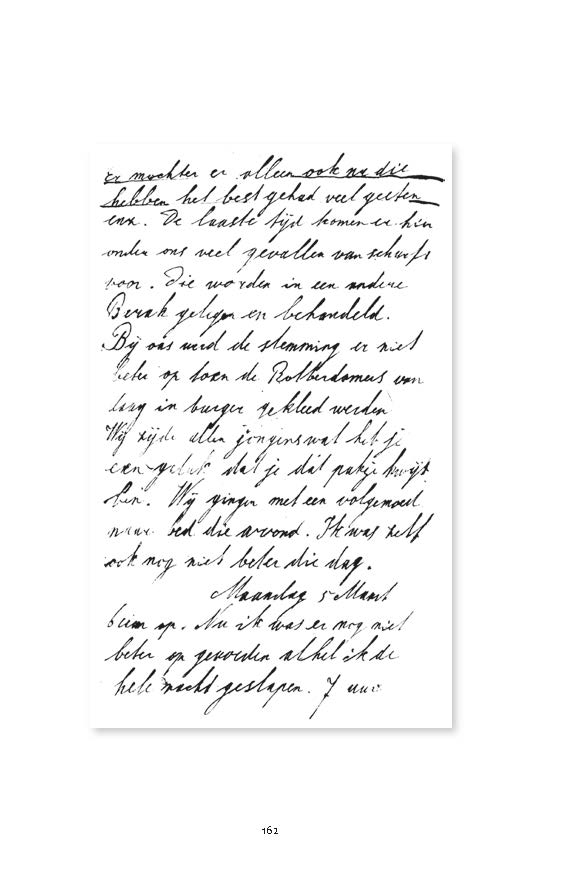 Er mochten er alleen ook na die
hebben het best gehad veel geeten
enz. De laaste tijd komen er hier
onder ons veel gevallen van schurft
voor. Die worden in een andere
Barak gelegen en behandeld.
Bij ons werd de stemming er niet
beter op toen de Rotterdamers van
laag in burger gekleed werden
Wij zijde allen jongens wat heb je
een geluk dat je dat pakje kwijt
ben. Wij gingen met een volgemoed
naar bed die avond. Ik was zelf
ook nog niet beter die dag.
Maandag 5 Maart
6 uur op. Nu ik was er nog niet
beter op geworden al heb ik de
hele nacht geslapen. 7 uur
162